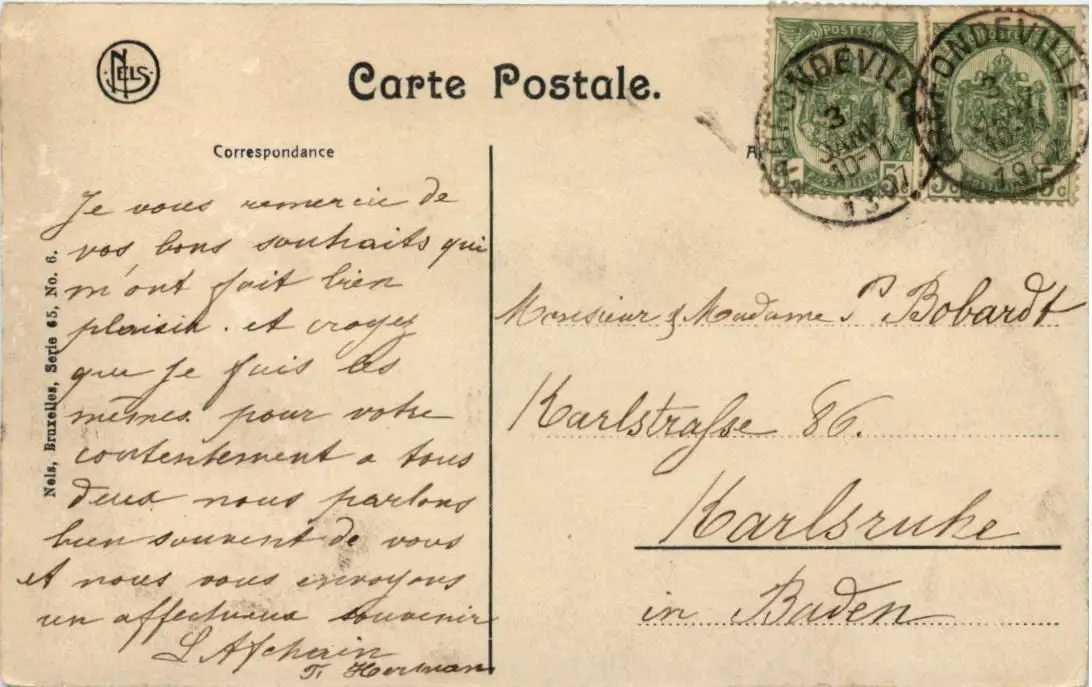 NELS
Carte Postale.
POSTES
5c
POSTERIJEN
PROFONDEVILLE
3
JANV
10-11
1907
5c
5c
PROFONDEVILLE
3
JANV
10-11
1907
Correspondance
Je vous remercie de
vos bons souhaits qui
m'ont fait bien
plaisir. et croyez
que je fais les
mêmes pour votre
contentement a tous
deux nous parlons
bien souvent de vous
et nous vous envoyons
un affectueux souvenir
T. Herman
Nels, Bruxelles, Serie 65, No. 6.
Monsieur & Madame P Bobardt
Karlstraße 86.
Karlsruhe
in Baden